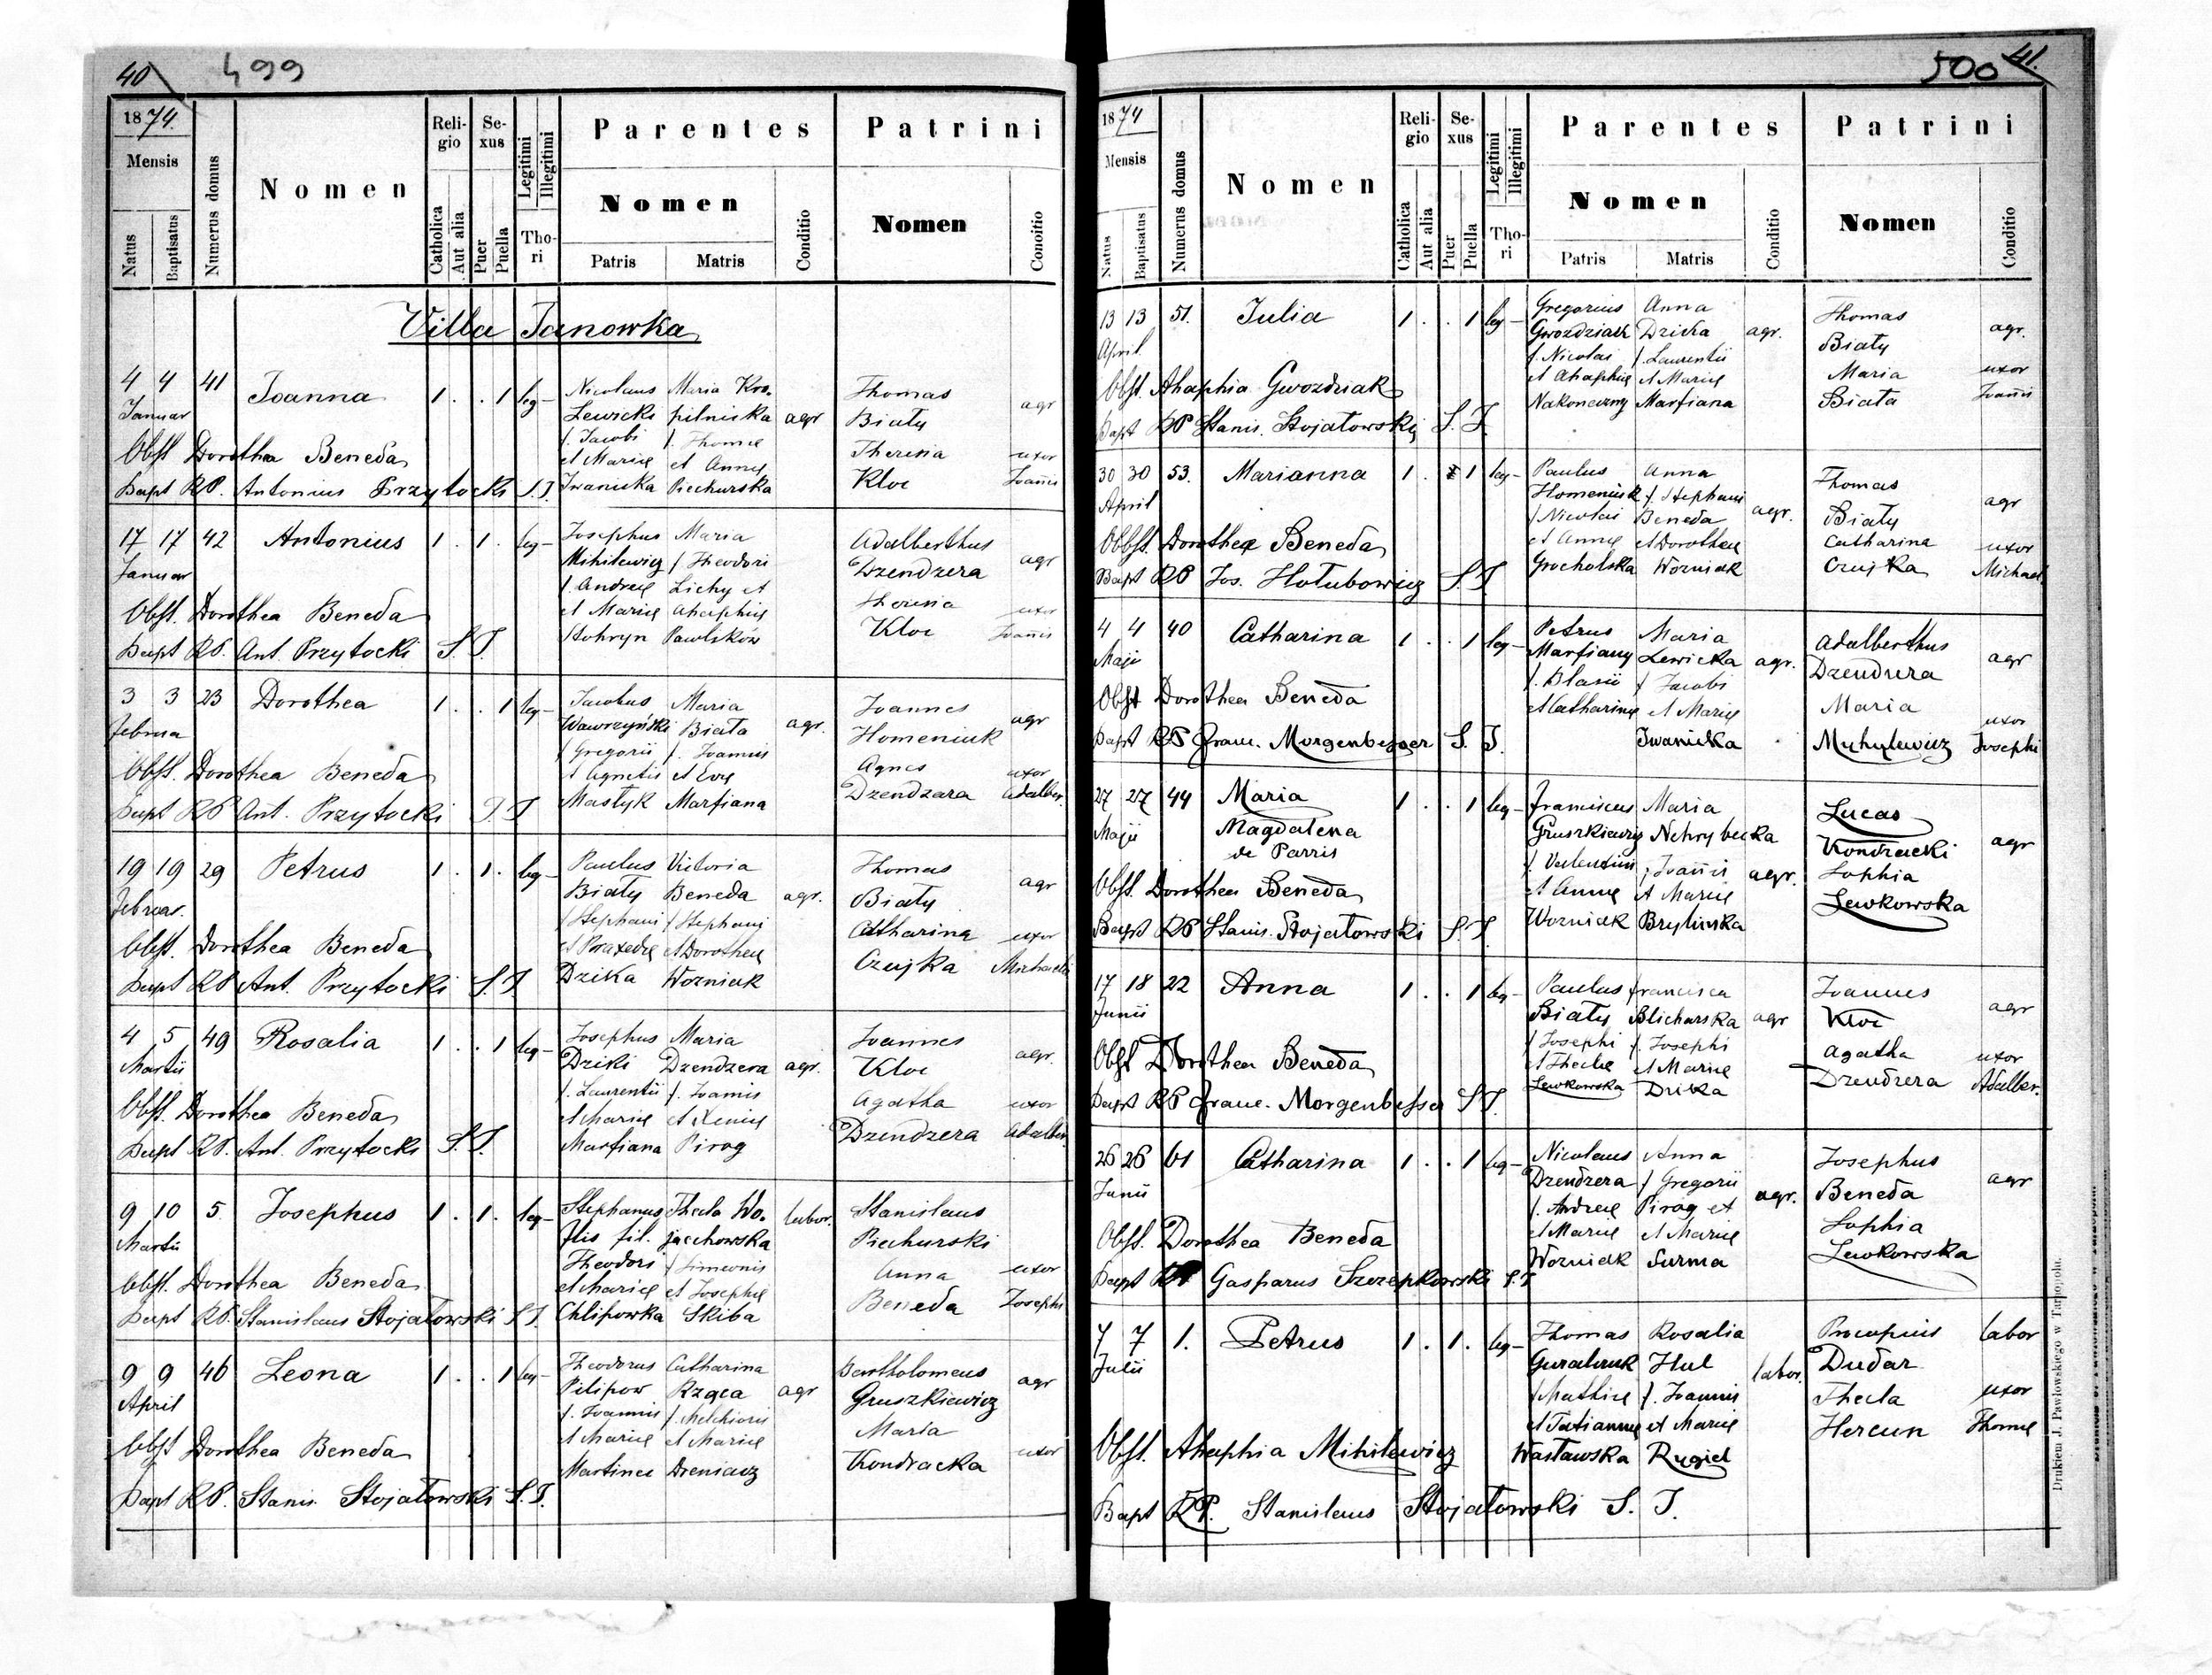 40 499
1874.
Mensis
Natus Baptisatus
Numerus domus
Nomen
Religio
Catholica Aut alia
Sexus
Puer Puella
Legitimi Illegitimi
Thori
Parentes
Nomen
Patris Matris
Conditio
Patrini
Nomen
Conditio
Villa Janowka
4 4 41 Joanna 1 . . 1 leg- Nicolaus Maria Kro- Thomas
Januar Lewicki pilnicka agr Biały agr
f. Jacobi f. Thomæ
Obst. Dorothea Beneda et Mariæ et Annæ Theresia uxor
Bapt RP. Antonius Przytocki S.J. Iwanicka Piechurska Kloc Joañis
17 17 42 Antonius 1 . 1 . leg- Josephus Maria Adalberthus
Januar Mihilewicz f Theodori Dzendzera agr
f. Andreæ Lichy et
Obst. Dorothea Beneda et Mariæ Ahaphiæ Theresia uxor
Bapt RP. Ant. Przytocki S.J. Hohryn Pawlików Kloc Joañis
3 3 23 Dorothea 1 . . 1 leg- Jacobus Maria Joannes
Februa Wawrzyński Biała agr. Homeniuk agr
f Gregorii f. Joannis
Obst. Dorothea Beneda et Agnetis et Evæ Agnes uxor
Bapt RP Ant. Przytocki S.J. Mastyk Marfiana Dzendzara Adalber.
19 19 29 Petrus 1 . 1 . leg- Paulus Victoria Thomas
Februar. Biały Beneda agr. Biały agr
f Stephani f Stephani
Obst. Dorothea Beneda et Praxedæ et Dorotheæ Catharina uxor
Bapt RP Ant. Przytocki S.J. Dzika Wozniak Czujka Michaelis
4 5 49 Rosalia 1 . . 1 leg- Josephus Maria Joannes
Martii Dziki Dzendzera agr. Kloc agr.
f. Laurentii f. Joannis
Obst. Dorothea Beneda et Mariæ et Xeniæ Agatha uxor
Bapt RP. Ant. Przytocki S.J. Marfiana Pirog Dzendzera Adalber.
9 10 5 Josephus 1 . 1 . leg- Stephanus Thecla Wo- labor. Stanislaus
Martii Ilis fil. jciechowska Piechurski
Theodori f Simeonis
Obst. Dorothea Beneda et Mariæ et Josephæ Anna uxor
Bapt RP. Stanislaus Stojałowski S.J. Chlipowka Skiba Beneda Josephi
9 9 46 Leona 1 . . 1 leg- Theodorus Catharina Bartholomeus
April Pilipow Rząca agr Gruszkiewicz agr
f. Joannis f. Melchioris
Obst Dorothea Beneda et Mariæ et Mariæ Maria uxor
Bapt RP. Stanis. Stojałowski S.J. Martinec Dreniacz Kondracka
500 41.
1874
Mensis
Natus Baptisatus
Numerus domus
Nomen
Religio
Catholica Aut alia
Sexus
Puer Puella
Legitimi Illegitimi
Thori
Parentes
Nomen
Patris Matris
Conditio
Patrini
Nomen
Conditio
13 13 51. Julia 1 . . 1 leg- Gregorius Anna Thomas
April Gwozdziak Dzika agr. Biały agr.
f. Nicolai f. Laurentii
Obst. Ahaphia Gwozdziak et Ahaphiæ et Mariæ Maria uxor
Bapt RP Stanis. Stojałowski S.J. Nakoneczny Marfiana Biała Joañis
30 30 53. Marianna 1 . 1 leg- Paulus Anna Thomas
April Homeniuk f. Stephani agr. Biały agr
f Nicolai Beneda
Obst. Dorothea Beneda et Annæ et Dorotheæ Catharina uxor
Bapt RP Jos. Hołubowicz S.J. Grocholska Wozniak Czujka Michael
4 4 40 Catharina 1 . . 1 leg- Petrus Maria Adalberthus
Maji Marfiany Lewicka agr. Dzendzera agr
f. Blasii f Jacobi
Obst Dorothea Beneda et Catharinæ et Mariæ Maria uxor
Bapt RP Franc. Morgenbesser S.J. Iwanicka Myhylewicz Josephi
27 27 44 Maria 1 . . 1 leg- Franciscus Maria Lucas
Maji Magdalena Gruszkiewicz Nehrybecka Kondracki agr
de Parris f. Valentini f. Joañis agr. Sophia
Obst. Dorothea Beneda et Annæ et Mariæ Lewkowska
Bapt RP Stanis. Stojałowski S.J. Wozniak Brylinska
17 18 22 Anna 1 . . 1 leg- Paulus Francisca Joannes
Junii Biały Blicharska agr Kloc agr
f Josephi f. Josephi
Obst Dorothea Beneda et Theclæ et Mariæ Agatha uxor
Bapt RP Franc. Morgenbesser S.J. Lewkowska Dzika Dzendzera Adalber.
26 26 61 Catharina 1 . . 1 leg- Nicolaus Anna Josephus
Junii Dzendzera f Gregorii agr. Beneda agr
f. Andreæ Pirog et
Obst. Dorothea Beneda et Mariæ et Mariæ Sophia
Bapt Gasparus Szczepkowski S.J. Wozniak Surma Lewkowska
7 7 1. Petrus 1 . 1 . leg- Thomas Rosalia Procopius labor
Julii Guralczuk Hul labor. Dudar
f Mathiæ f. Joannis Thecla uxor
et Tatiannæ et Mariæ Hercun Thomæ
Obst. Ahaphia Mihilewicz Wasławska Rugiel
Bapt RP. Stanislaus Stojałowski S. J.
Drukiem J. Pawłowskiego w Tarnopolu.